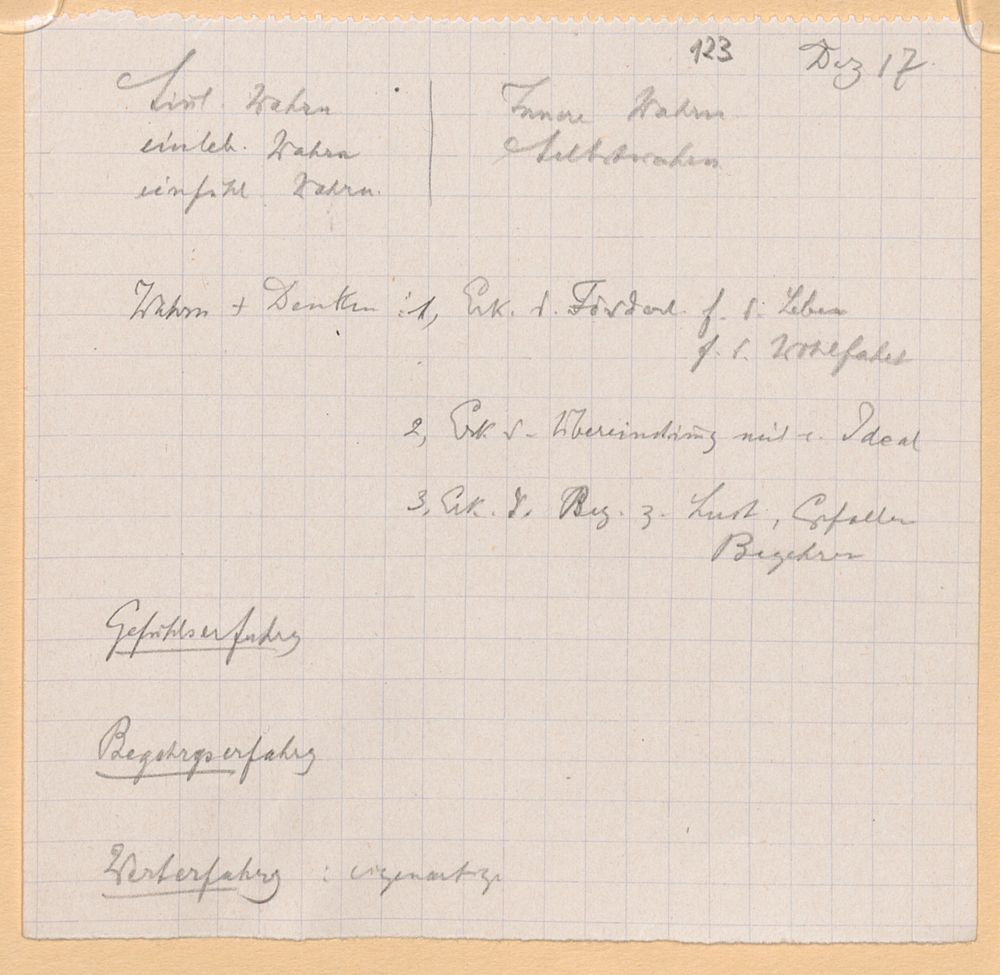 123 Dez 17
Sinl. Wahrn | Innere Wahrn.
einleb. Wahrn Selbstwahrn
einfühl Wahrn.
Wahrn + Denken : 1, Erk. d. Förderl. f. d. Leben
f. d. Wohlfahrt
2, Erk d. Übereinstimg mit e. Ideal
3, Erk. d. Bez. z. Lust, Gefallen
Begehren
Gefühlserfahrg
Begehrgserfahrg
Werterfahrg : eigenartige